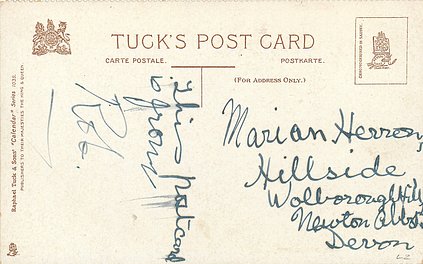 TUCK'S POST CARD
CARTE POSTALE.
POSTKARTE.
(FOR ADDRESS ONLY.)
Raphael Tuck & Sons' "Calendar" Series 1035.
PUBLISHERS TO THEIR MAJESTIES THE KING & QUEEN.
This Postcard
is from
Rob.
Marian Herron,
Hillside,
Wolborough Hill,
Newton Abbot
Devon